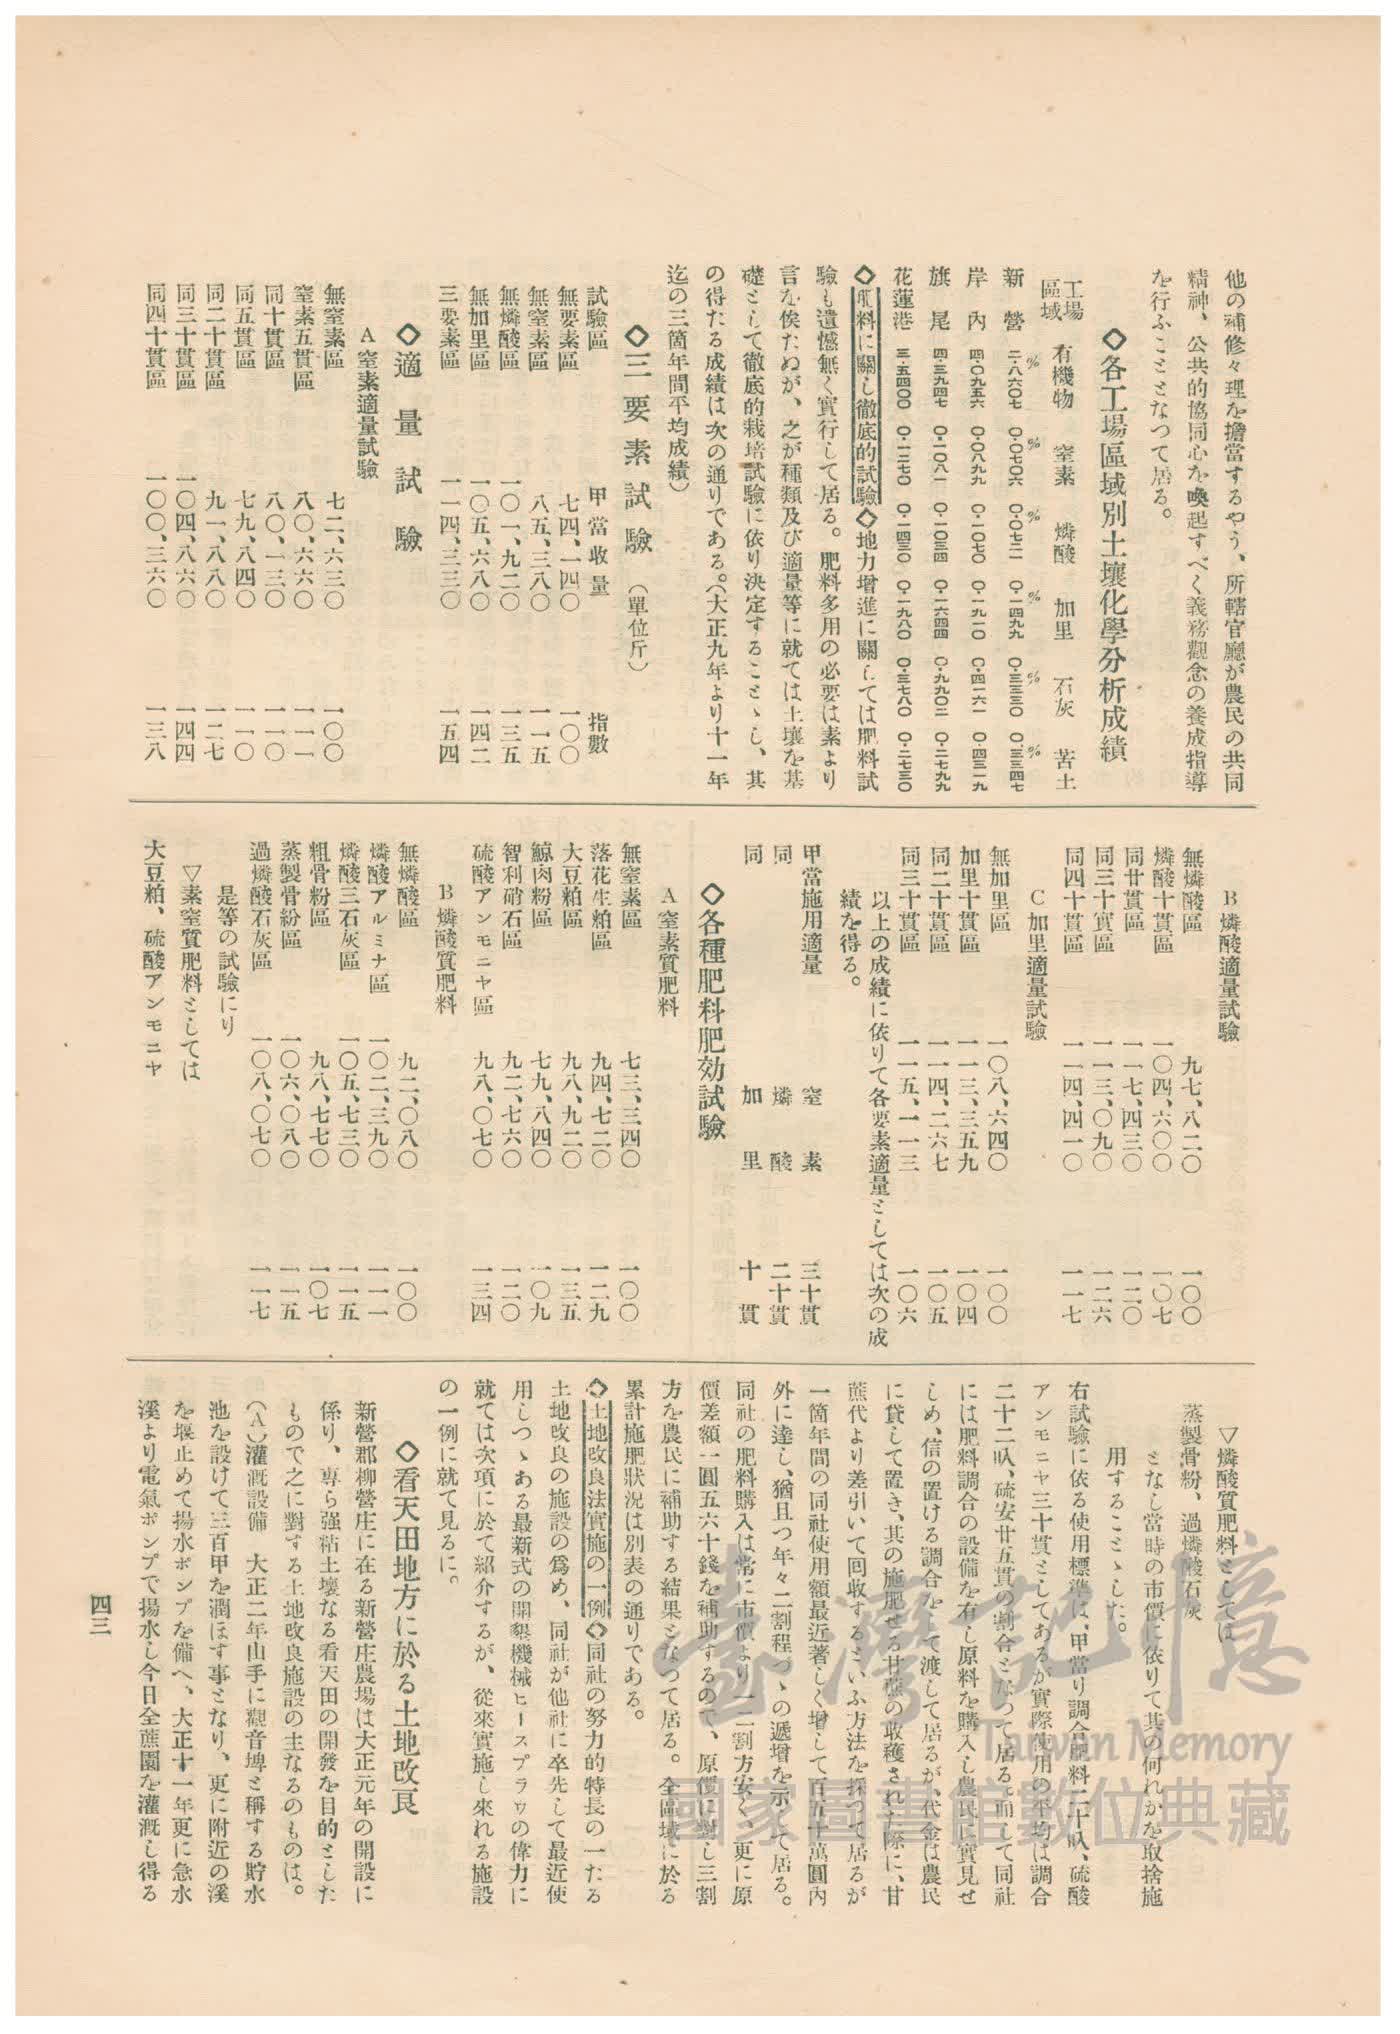 他の補修々理を擔當するやう、所轄官廳が農民の共同
精神、公共的協同心を喚起すべく義務觀念の養成指導
を行ふこととなつて居る。
◇各工場區域別土壤化學分析成績
工場區域 有機物 窒素 燐酸 加里 石灰 苦土
% % % % % %
新營 二・八六〇七 〇・〇七〇六 〇・〇七二一 〇・一四九九 〇・三三三〇 〇・三三四七
岸內 四・〇九五六 〇・〇八九九 〇・一〇七〇 〇・一九一〇 〇・四一六一 〇・四三一九
旗尾 四・三九四七 〇・一〇八一 〇・一〇三四 〇・一六四四 〇・九九〇二 〇・二七九九
花蓮港 三・五四〇〇 〇・一三七〇 〇・一四三〇 〇・一九八〇 〇・三七八〇 〇・二七三〇
◇肥料に關し徹底的試驗◇地力增進に關しては肥料試
驗も遺憾無く實行して居る。肥料多用の必要は素より
言を俟たぬが、之が種類及び適量等に就ては土壤を基
礎として徹底的栽培試驗に依り決定することゝし、其
の得たる成績は次の通りである。(大正九年より十一年
迄の三箇年間平均成績)
◇三要素試驗(單位斤)
試驗區 甲當收量 指數
無要素區 七四、一四〇 一〇〇
無窒素區 八五、三八〇 一一五
無燐酸區 一〇一、九二〇 一三五
無加里區 一〇五、六八〇 一四二
三要素區 一一四、三三〇 一五四
◇適量試驗
A 窒素適量試驗
無窒素區 七二、六三〇 一〇〇
窒素五貫區 八〇、六六〇 一一一
同十貫區 八〇、一三〇 一一〇
同五貫區 七九、八四〇 一一〇
同二十貫區 九一、八八〇 一二七
同三十貫區 一〇四、八六〇 一四四
同四十貫區 一〇〇、三六〇 一三八
B 燐酸適量試驗
無燐酸區 九七、八二〇 一〇〇
燐酸十貫區 一〇四、六〇〇 一〇七
同廿貫區 一一七、四三〇 一二〇
同三十實區 一一三、〇九〇 一二六
同四十貫區 一一四、四一〇 一一七
C 加里適量試驗
無加里區 一〇八、六四〇 一〇〇
加里十貫區 一一三、三五九 一〇四
同二十貫區 一一四、二六七 一〇五
同三十貫區 一一五、一一三 一〇六
以上の成績に依りて各要素適量としては次の成
績を得る。
甲當施用適量 窒素 三十貫
同 燐酸 二十貫
同 加里 十貫
◇各種肥料肥効試驗
A 窒素質肥料
無窒素區 七三、三四〇 一〇〇
落花生粕區 九四、七二〇 一二九
大豆粕區 九八、九二〇 一三五
鯨肉粉區 七九、八四〇 一〇九
智利硝石區 九二、七六〇 一二〇
硫酸アンモニヤ區 九八、〇七〇 一三四
B 燐酸質肥料
無燐酸區 九二、〇八〇 一〇〇
燐酸アルミナ區 一〇二、三九〇 一一一
燐酸三石灰區 一〇五、七三〇 一一五
粗骨粉區 九八、七七〇 一〇七
蒸製骨紛區 一〇六、〇八〇 一一五
過燐酸石灰區 一〇八、〇七〇 一一七
是等の試驗にり
▽素窒質肥料としては
大豆粕、硫酸アンモニヤ
▽燐酸質肥料としては
蒸製骨粉、過燐酸石灰
となし當時の市價に依りて其の何れかを取捨施
用することゝした。
右試驗に依る使用標準は、甲當り調合肥料二十叺、硫酸
アンモニヤ三十貫としてあるが實際使用の平均は調合
二十二叺、硫安廿五貫の割合となつて居る。而して同社
には肥料調合の設備を有し原料を購入し農民に實見せ
しめ、信の置ける調合をして渡して居るが、代金は農民
に貸して置き、其の施肥せる甘蔗の收穫された際に、甘
蔗代より差引いて回收するといふ方法を採つて居るが
一箇年間の同社使用額最近著しく增して、百五十萬圓內
外に達し、猶且つ年々二割程づゝの遞增を示して居る。
同社の肥料購入は常に市價より一二割方安く、更に原
價差額一圓五六十錢を補助するので、原價に對し三割
方を農民に補助する結果となつて居る。全區域に於る
累計施肥狀況は別表の通りである。
◇土地改良法實施の一例◇同社の努力的特長の一たる
土地改良の施設の爲め、同社が他社に卒先して最近使
用しつゝある最新式の開墾機械ヒースプラウの偉力に
就ては次項に於て紹介するが、從來實施し來れる施設
の一例に就て見るに。
◇看天田地方に於る土地改良
新營郡柳營庄に在る新營庄農場は大正元年の開設に
係り、專ら强粘土壤なる看天田の開發を目的とした
もので之に對する土地改良施設の主なるのものは。
(A)灌漑設備 大正二年山手に觀音埤と稱する貯水
池を設けて三百甲を潤ほす事となり、更に附近の溪
を堰止めて揚水ポンプを備へ、大正十一年更に急水
溪より電氣ポンプで揚水し今日全蔗園を灌漑し得る
四三
臺灣記憶
Taiwan Memory
國家圖書館數位典藏